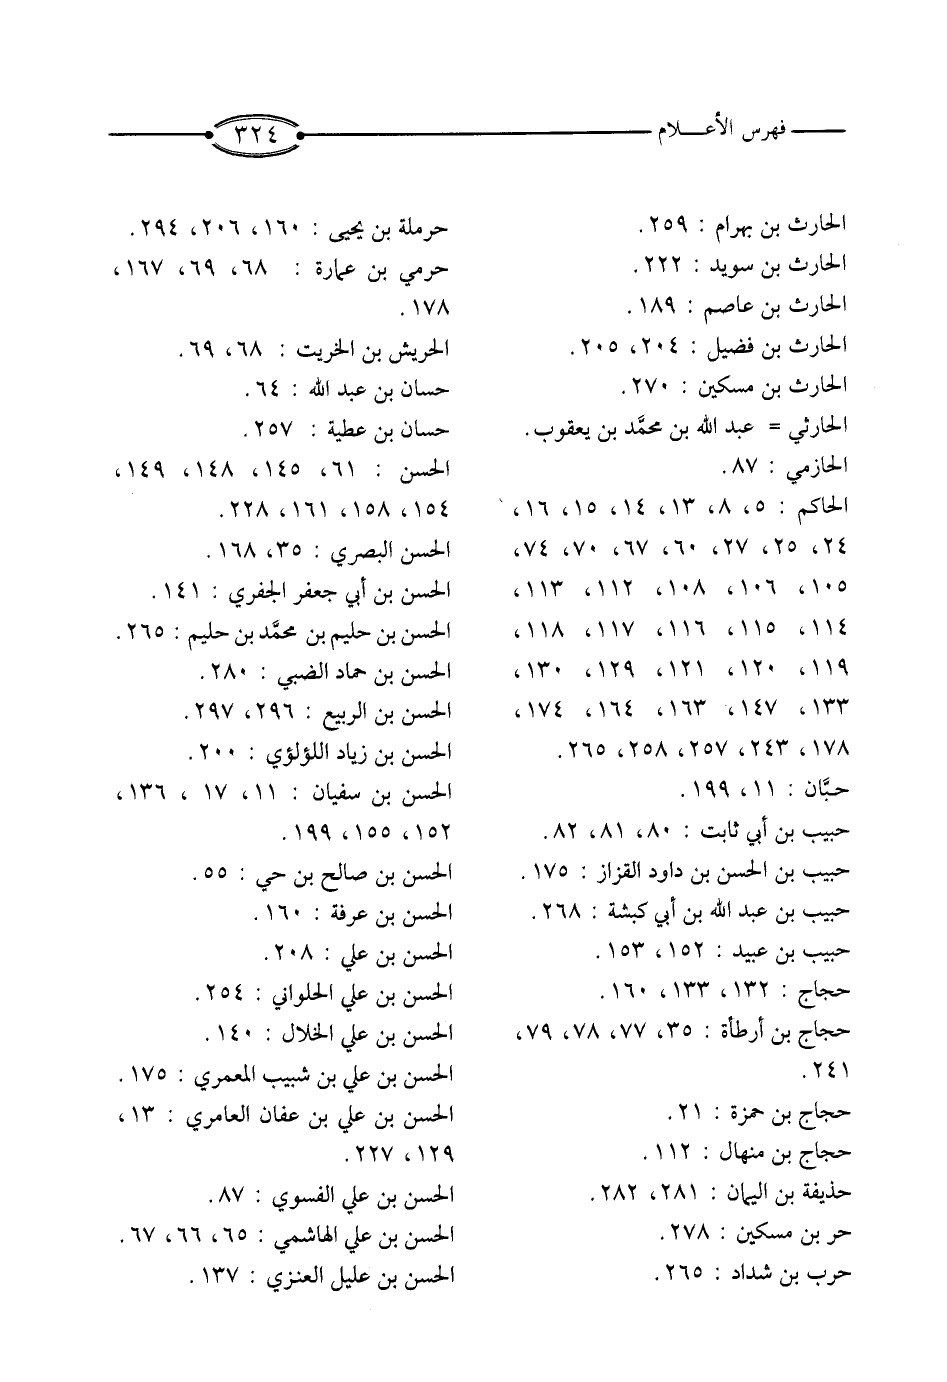 فهرس الأعــلام
٣٢٤
الحارث بن بهرام : ٢٥٩.
الحارث بن سويد : ٢٢٢.
الحارث بن عاصم : ١٨٩.
الحارث بن فضيل : ٢٠٤، ٢٠٥.
الحارث بن مسكين : ٢٧٠.
الحارثي = عبد الله بن محمَّد بن يعقوب.
الحازمي : ٨٧.
الحاكم : ٥، ٨، ١٣، ١٤، ١٥، ١٦،
٢٤، ٢٥، ٢٧، ٦٠، ٦٧، ٧٠، ٧٤،
١٠٥، ١٠٦، ١٠٨، ١١٢، ١١٣،
١١٤، ١١٥، ١١٦، ١١٧، ١١٨،
١١٩، ١٢٠، ١٢١، ١٢٩، ١٣٠،
١٣٣، ١٤٧، ١٦٣، ١٦٤، ١٧٤،
١٧٨، ٢٤٣، ٢٥٧، ٢٥٨، ٢٦٥.
حبَّان : ١١، ١٩٩.
حبيب بن أبي ثابت : ٨٠، ٨١، ٨٢.
حبيب بن الحسن بن داود القزاز : ١٧٥.
حبيب بن عبد الله بن أبي كبشة : ٢٦٨.
حبيب بن عبيد : ١٥٢، ١٥٣.
حجاج : ١٣٢، ١٣٣، ١٦٠.
حجاج بن أرطأة : ٣٥، ٧٧، ٧٨، ٧٩،
٢٤١.
حجاج بن حمزة : ٢١.
حجاج بن منهال : ١١٢.
حذيفة بن اليمان : ٢٨١، ٢٨٢.
حر بن مسكين : ٢٧٨.
حرب بن شداد : ٢٦٥.
حرملة بن يحيى : ١٦٠، ٢٠٦، ٢٩٤.
حرمي بن عمارة : ٦٨، ٦٩، ١٦٧،
١٧٨.
الحريش بن الخريت : ٦٨، ٦٩.
حسان بن عبد الله : ٦٤.
حسان بن عطية : ٢٥٧.
الحسن : ٦١، ١٤٥، ١٤٨، ١٤٩،
١٥٤، ١٥٨، ١٦١، ٢٢٨.
الحسن البصري : ٣٥، ١٦٨.
الحسن بن أبي جعفر الجفري : ١٤١.
الحسن بن حليم بن محمَّد بن حليم : ٢٦٥.
الحسن بن حماد الضبي : ٢٨٠.
الحسن بن الربيع : ٢٩٦، ٢٩٧.
الحسن بن زياد اللؤلؤي : ٢٠٠.
الحسن بن سفيان : ١١، ١٧ ، ١٣٦،
١٥٢، ١٥٥، ١٩٩.
الحسن بن صالح بن حي : ٥٥.
الحسن بن عرفة : ١٦٠.
الحسن بن علي : ٢٠٨.
الحسن بن علي الحلواني : ٢٥٤.
الحسن بن علي الخلال : ١٤٠.
الحسن بن علي بن شبيب المعمري : ١٧٥.
الحسن بن علي بن عفان العامري : ١٣،
١٢٩، ٢٢٧.
الحسن بن علي الفسوي : ٨٧.
الحسن بن علي الهاشمي : ٦٥، ٦٦، ٦٧.
الحسن بن عليل العنزي : ١٣٧.